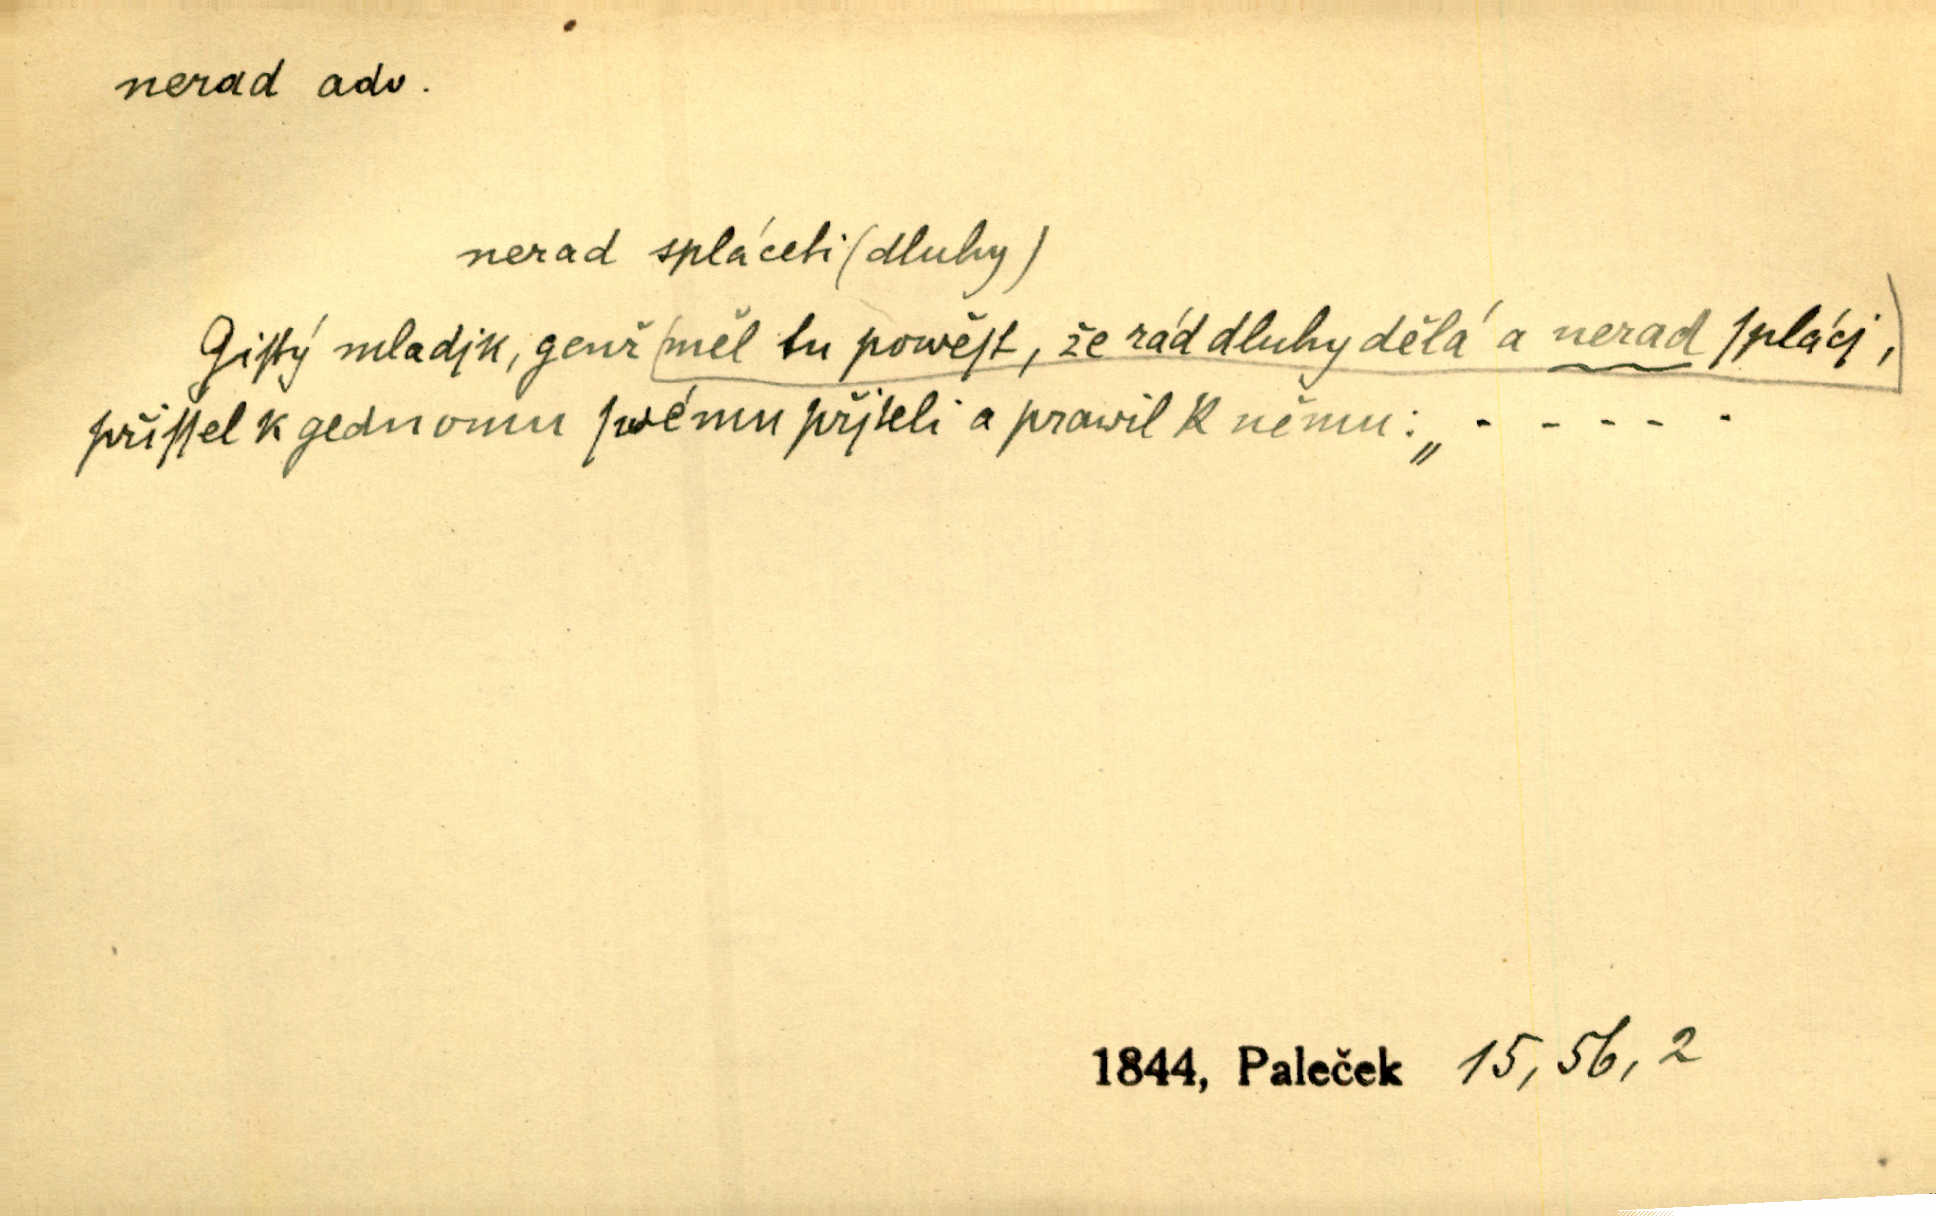 nerad adv.
nerad spláceti (dluhy)
Giſtý mladjk, genž (měl tu powěſt, že rád dluhy dělá a nerad ſplácj,)
přiſſel k gednomu ſwému přjteli a prawil k němu: „ - - - - -
1844, Paleček 15, 56, 2